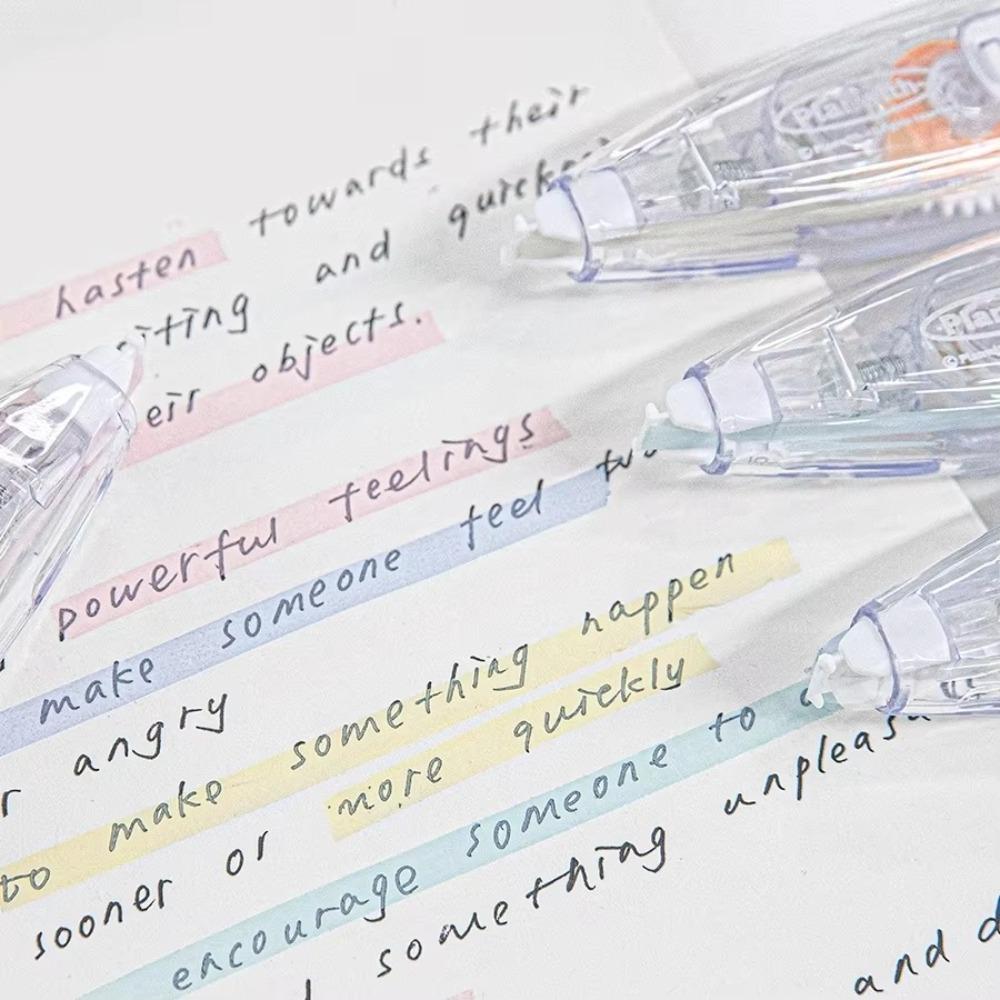 hasten towards their
and
objects.
powerful feelings
make someone feel
angry
to make something happen
sooner or more quickly
encourage someone to
something
and